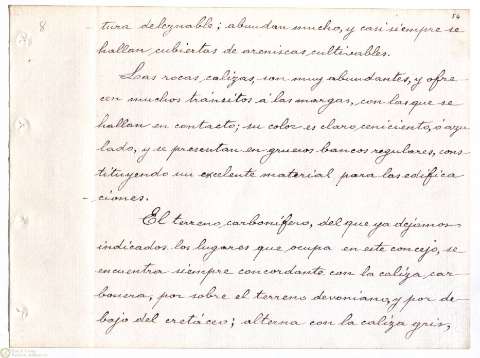 8
56
tura deleznable; abundan mucho, y casi siempre se
hallan cubiertas de areniscas cultivables.
Las rocas calizas, son muy abundantes, y ofre
cen muchos tránsitos á las margas, con las que se
hallan en contacto; su color es claro, ceniciento, ó azu
lado, y se presentan en gruesos bancos regulares, cons
tituyendo un excelente material para las edifica
ciones.
El terreno carbonífero, del que ya dejamos
indicados los lugares que ocupa en este concejo, se
encuentra siempre concordante con la caliza car
bonera, por sobre el terreno devoniano, y por de
bajo del cretáceo; alterna con la caliza gris,